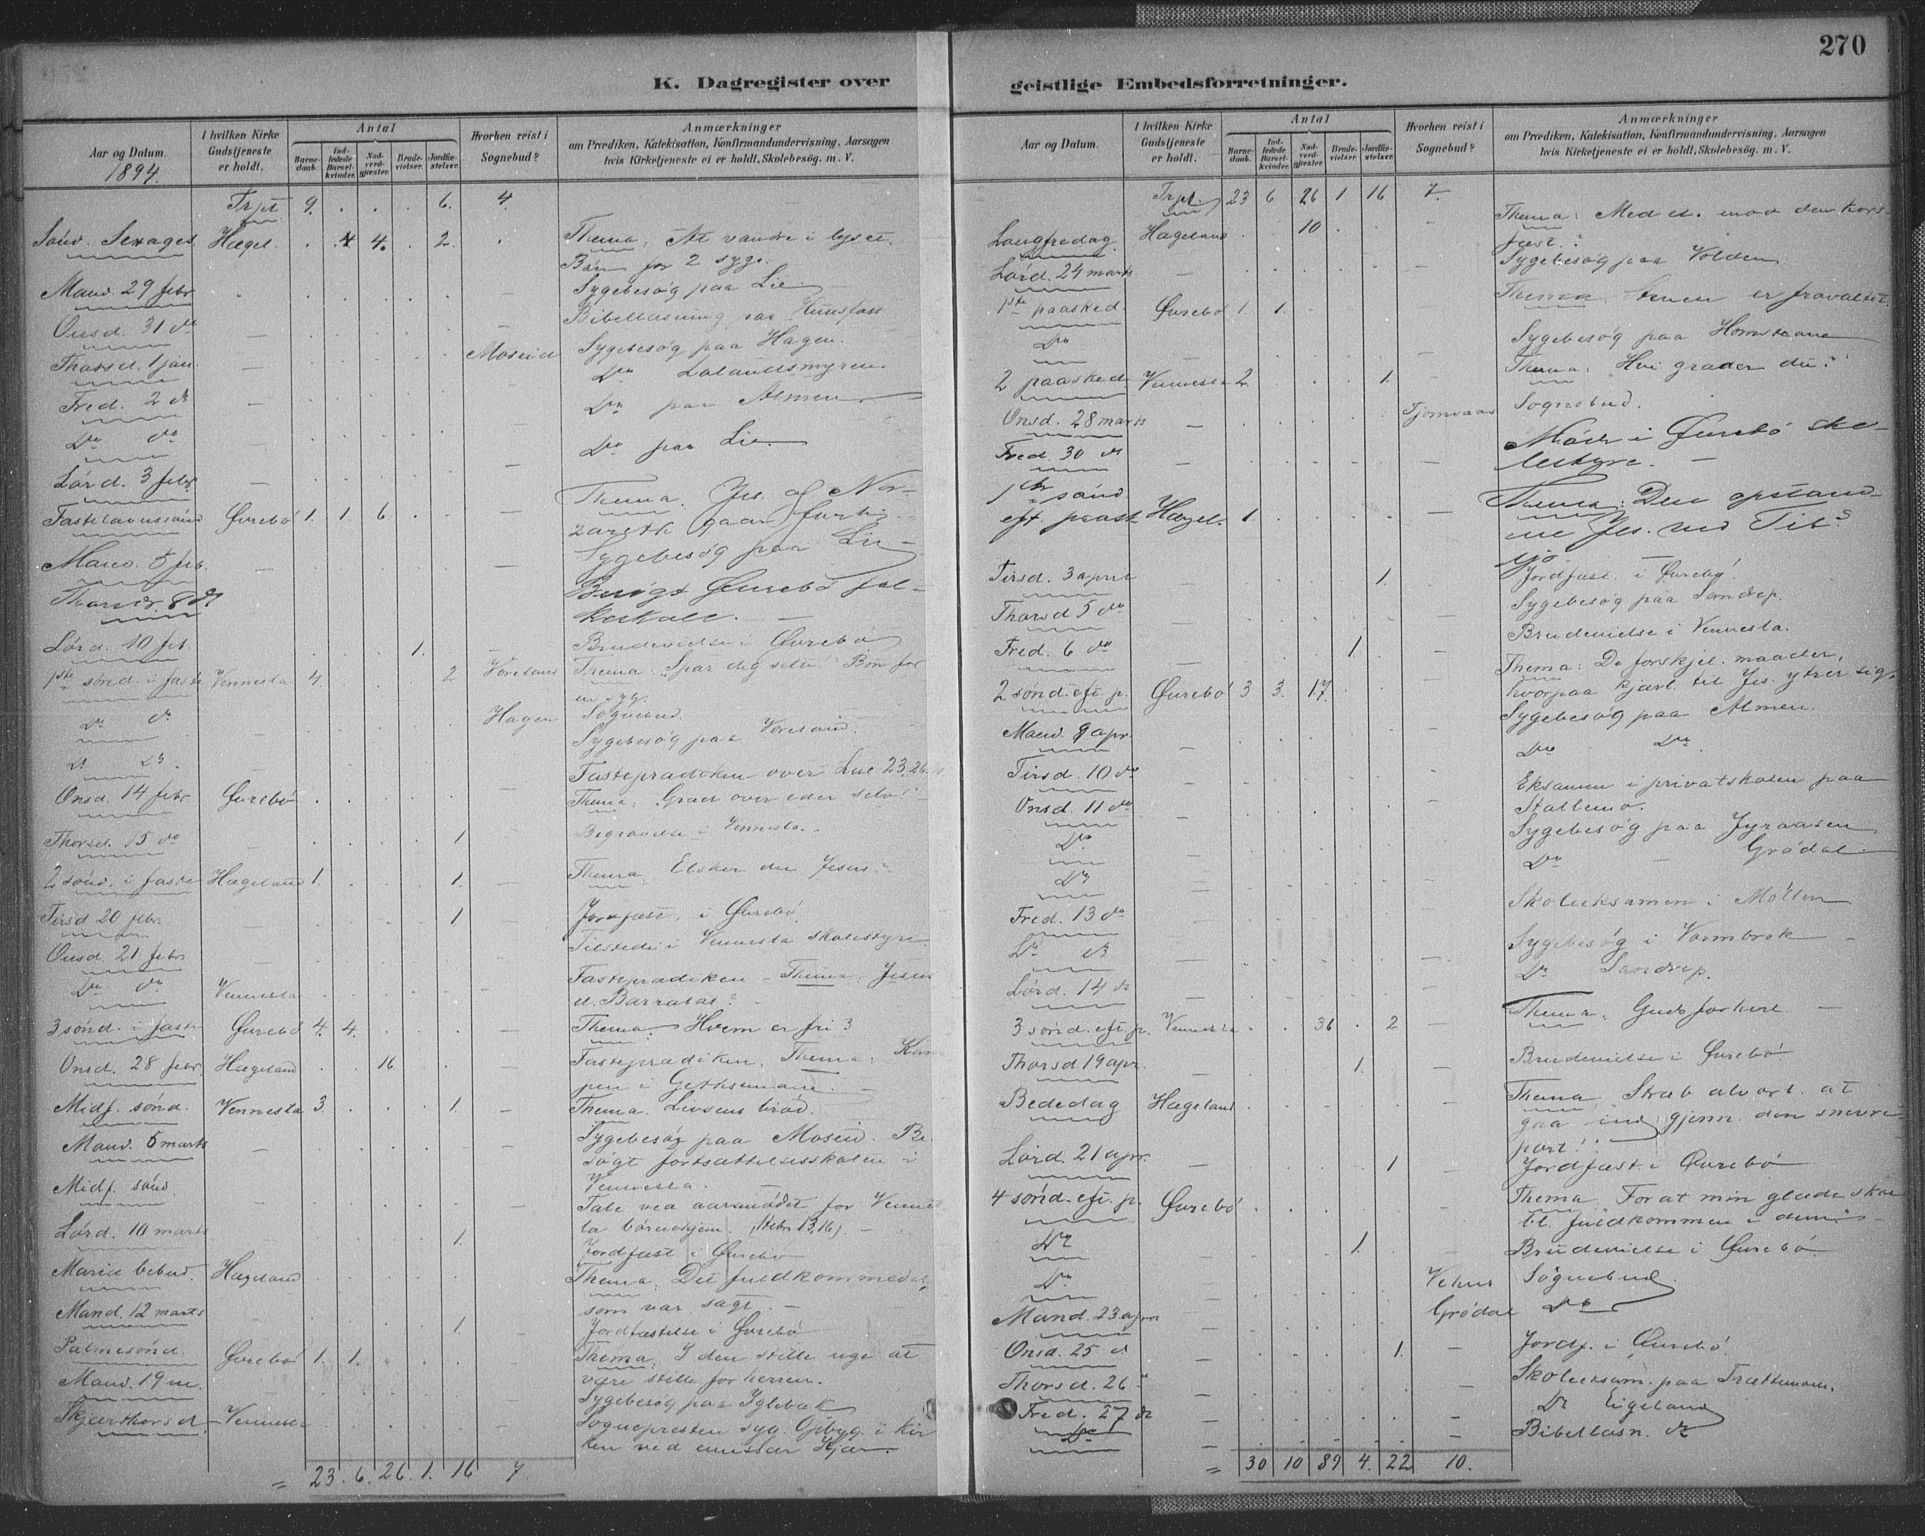 270
K. Dagregister over
geistlige Embedsforretninger.
Aar og Datum.
1894.
I hvilken Kirke Gudstjeneste er holdt.
Antal
Barnedaab.
Indledede Barselkvinder.
Nadverdgjæster.
Brudevielser.
Jordfæstelser.
Hvorhen reist i Sognebud?
Anmærkninger
om Prædiken, Katekisation, Konfirmandundervisning, Aarsagen
hvis Kirketjeneste ei er holdt, Skolebesøg. m. V.
Trpt 9. . . . 6. 4.
Sønd. Sexages. Hægel. 4. 2. Thema: At vandre i lyset.
Bøn for 2 syge.
Mand. 29 febr Sygebesøg paa Lie
Onsd. 31 do Bibellæsning paa
Thorsd. 1 jan. Moseid Sygebesøg paa Hagen.
Fred. 2 do Do
Do do Do paa Almen
Lørd. 3 febr. Do paa Lie
Fastelavnssønd Øvrebø 1. 1. 6 Thema: Jes. af Na-
zareth gaar forbi
Mand. 5 feb. Sygebesøg paa Lie
Thorsd. 8 do Besøgt Øvrebø fol-
keskole.
Lørd. 10 feb 1. Brudevielse i Øvrebø
1ste sønd. i faste Vennesla 4. 2 Thema: "Spar dig selv!" Bøn for
en syg.
Do do Hagen Sognebud.
Do Do. Sygebesøg paa
Onsd. 14 febr Øvrebø Fasteprædiken over Luc 23, 26
Thema: Græd over eder selv!
Thorsd. 15 do 1 Begravelse i Vennesla.
2 sønd. i faste Hægeland 1. 1. Thema: Elsker du Jesus?
Tirsd 20 febr. 1 Jordfæst. i Øvrebø.
Onsd. 21 febr Tilstede i Vennesla skolestyre.
Do do Vennesla Fasteprædiken – Thema: Jesus
el. Barrabas?
3 sønd. i faste Øvrebø 4. 4. Thema: Hvem er fri?
Onsd. 28 febr. Hægeland 16 Fasteprædiken. Thema: Kam-
pen i Gethsemane.
Midf. sønd. Vennesla 3. 1. Thema: Livsens brød.
Mand. 5 marts Sygebesøg paa Moseid. Be-
søgt fortsættelsesskolen i
Vennesla.
Midf. sønd. Tale ved aarsmødet for Vennes-
la børnehjem. (Hebr. 13,16).
Lørd. 10 marts 1. Jordfæst. i Øvrebø
Mariæ bebud. Hægeland Thema: Det fuldkommedes,
som var sagt.
Mand. 12 marts 1. Jordfæstelse i Øvrebø
Palmesønd. Øvrebø 1. 1. Thema: I den stille uge at
være stille for herren.
Mand. 19 m. Sygebesøg paa Iglebæk
Skjærthorsd Vennesla Sognepresten syg. Opbyg. i kir-
ken ved emissær Kjær.
= 23. 6. 26. 1. 16 7
Aar og Datum.
I hvilken Kirke Gudstjeneste er holdt.
Antal
Barnedaab.
Indledede Barselkvinder.
Nadverdgjæster.
Brudevielser.
Jordfæstelser.
Hvorhen reist i Sognebud?
Anmærkninger
om Prædiken, Katekisation, Konfirmandundervisning, Aarsagen
hvis Kirketjeneste ei er holdt, Skolebesøg. m. V.
Trpt. 23 6 26 1. 16 7
Langfredag Hægeland 10 Thema: Med el. mod den kors-
fæst.?
Lørd. 24 marts Sygebesøg paa Volden
1ste paasked. Øvrebø 1. 1. Thema: Stenen er fravæltet
Do Sygebesøg paa
2 paasked Vennesla 2. 1. Thema: "Hvi græder du?"
Onsd. 28 marts Sognebud.
Fred. 30 do Møde i Øvrebø sko-
lestyre.
1ste sønd
eft paask Hægel. 1. Thema: Den opstand-
ne Jes. ved Tibe-
Tirsd. 3 april 1. Jordfæst. i Øvrebø.
Thorsd 5 do Sygebesøg paa Sandrip.
Fred. 6 do 1. Brudevielse i Vennesla.
2 sønd. eft. p. Øvrebø 3 3. 17 Thema: De forskjel. maader,
hvorpaa kjærl. til Jes. ytrer sig.
Mand 9 apr. Sygebesøg paa Almen.
Tirsd. 10 do Do Do
Onsd. 11 do Eksamen i privatskolen paa
Stallemo.
Do. Sygebesøg paa
Do Do Grødal
Fred. 13 do Skoleeksamen i
Do do Sygebesøg i
Lørd. 14 do Do Sandrip.
3 sønd. eft. p. Vennesla 36 2 Thema: Guds forhærl.
Thorsd 19 apr. 1. Brudevielse i Øvrebø
Bededag Hægeland Thema: Stræb alvorl. at
gaa ind gjenn. den snevre
port!
Lørd. 21 apr. 1 Jordfæst. i Øvrebø
4 sønd. eft. p. Øvrebø Thema: "For at min glæde skal
bl. fuldkommen i dem"
Do 1. Brudevielse i Øvrebø
Do. Sognebud
Mand. 23 apr Grødal Do
Onsd. 25 do 1. Jordf. i Øvrebø
Thorsd. 26 " Skoleeksam. paa
Fred. 27 do Do Eigeland
Do Bibellæsn. do
= 30 10 89 4. 22 10.